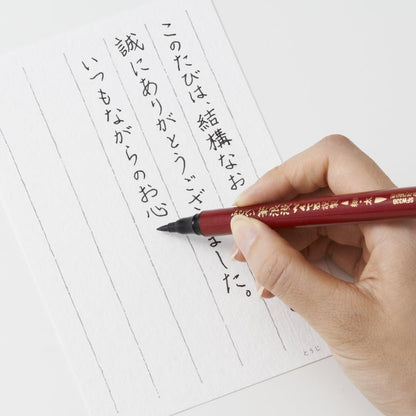 このたびは、結構なお
誠にありがとうござ ました。
いつもながらのお心
とうじ